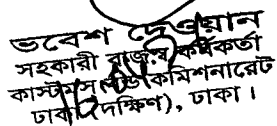 ভবেশ দেওয়ান
সহকারী রাজস্ব কর্মকর্তা
কাস্টমস বন্ড কমিশনারেট
ঢাকা (দক্ষিণ), ঢাকা।